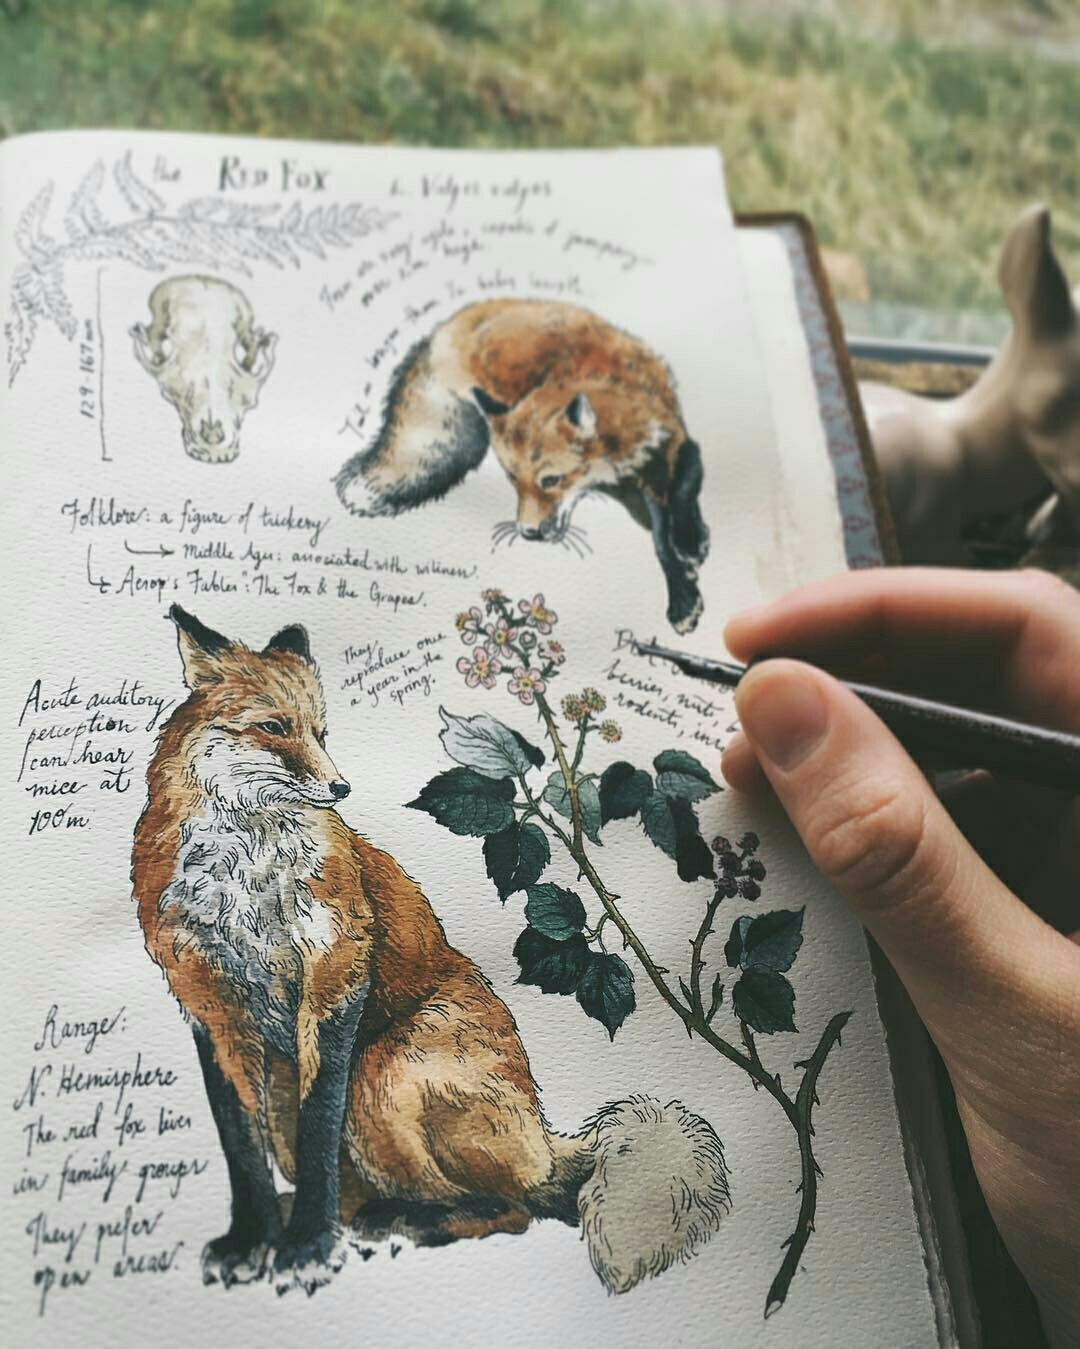 the RED FOX L. Vulpes vulpes
Fox are very agile, capable of jumping
over 2m high
Tail is longer than 1/2 body length
129-167mm
Folklore: a figure of trickery
Middle Ages: associated with wiliness.
Aesop's Fables": The Fox & the Grapes.
They
reproduce once
a year in the
spring.
Acute auditory
perception
can hear
mice at
100m
berries, nuts,
rodents,
Range:
N. Hemisphere
The red fox lives
in family groups
They prefer
open areas.